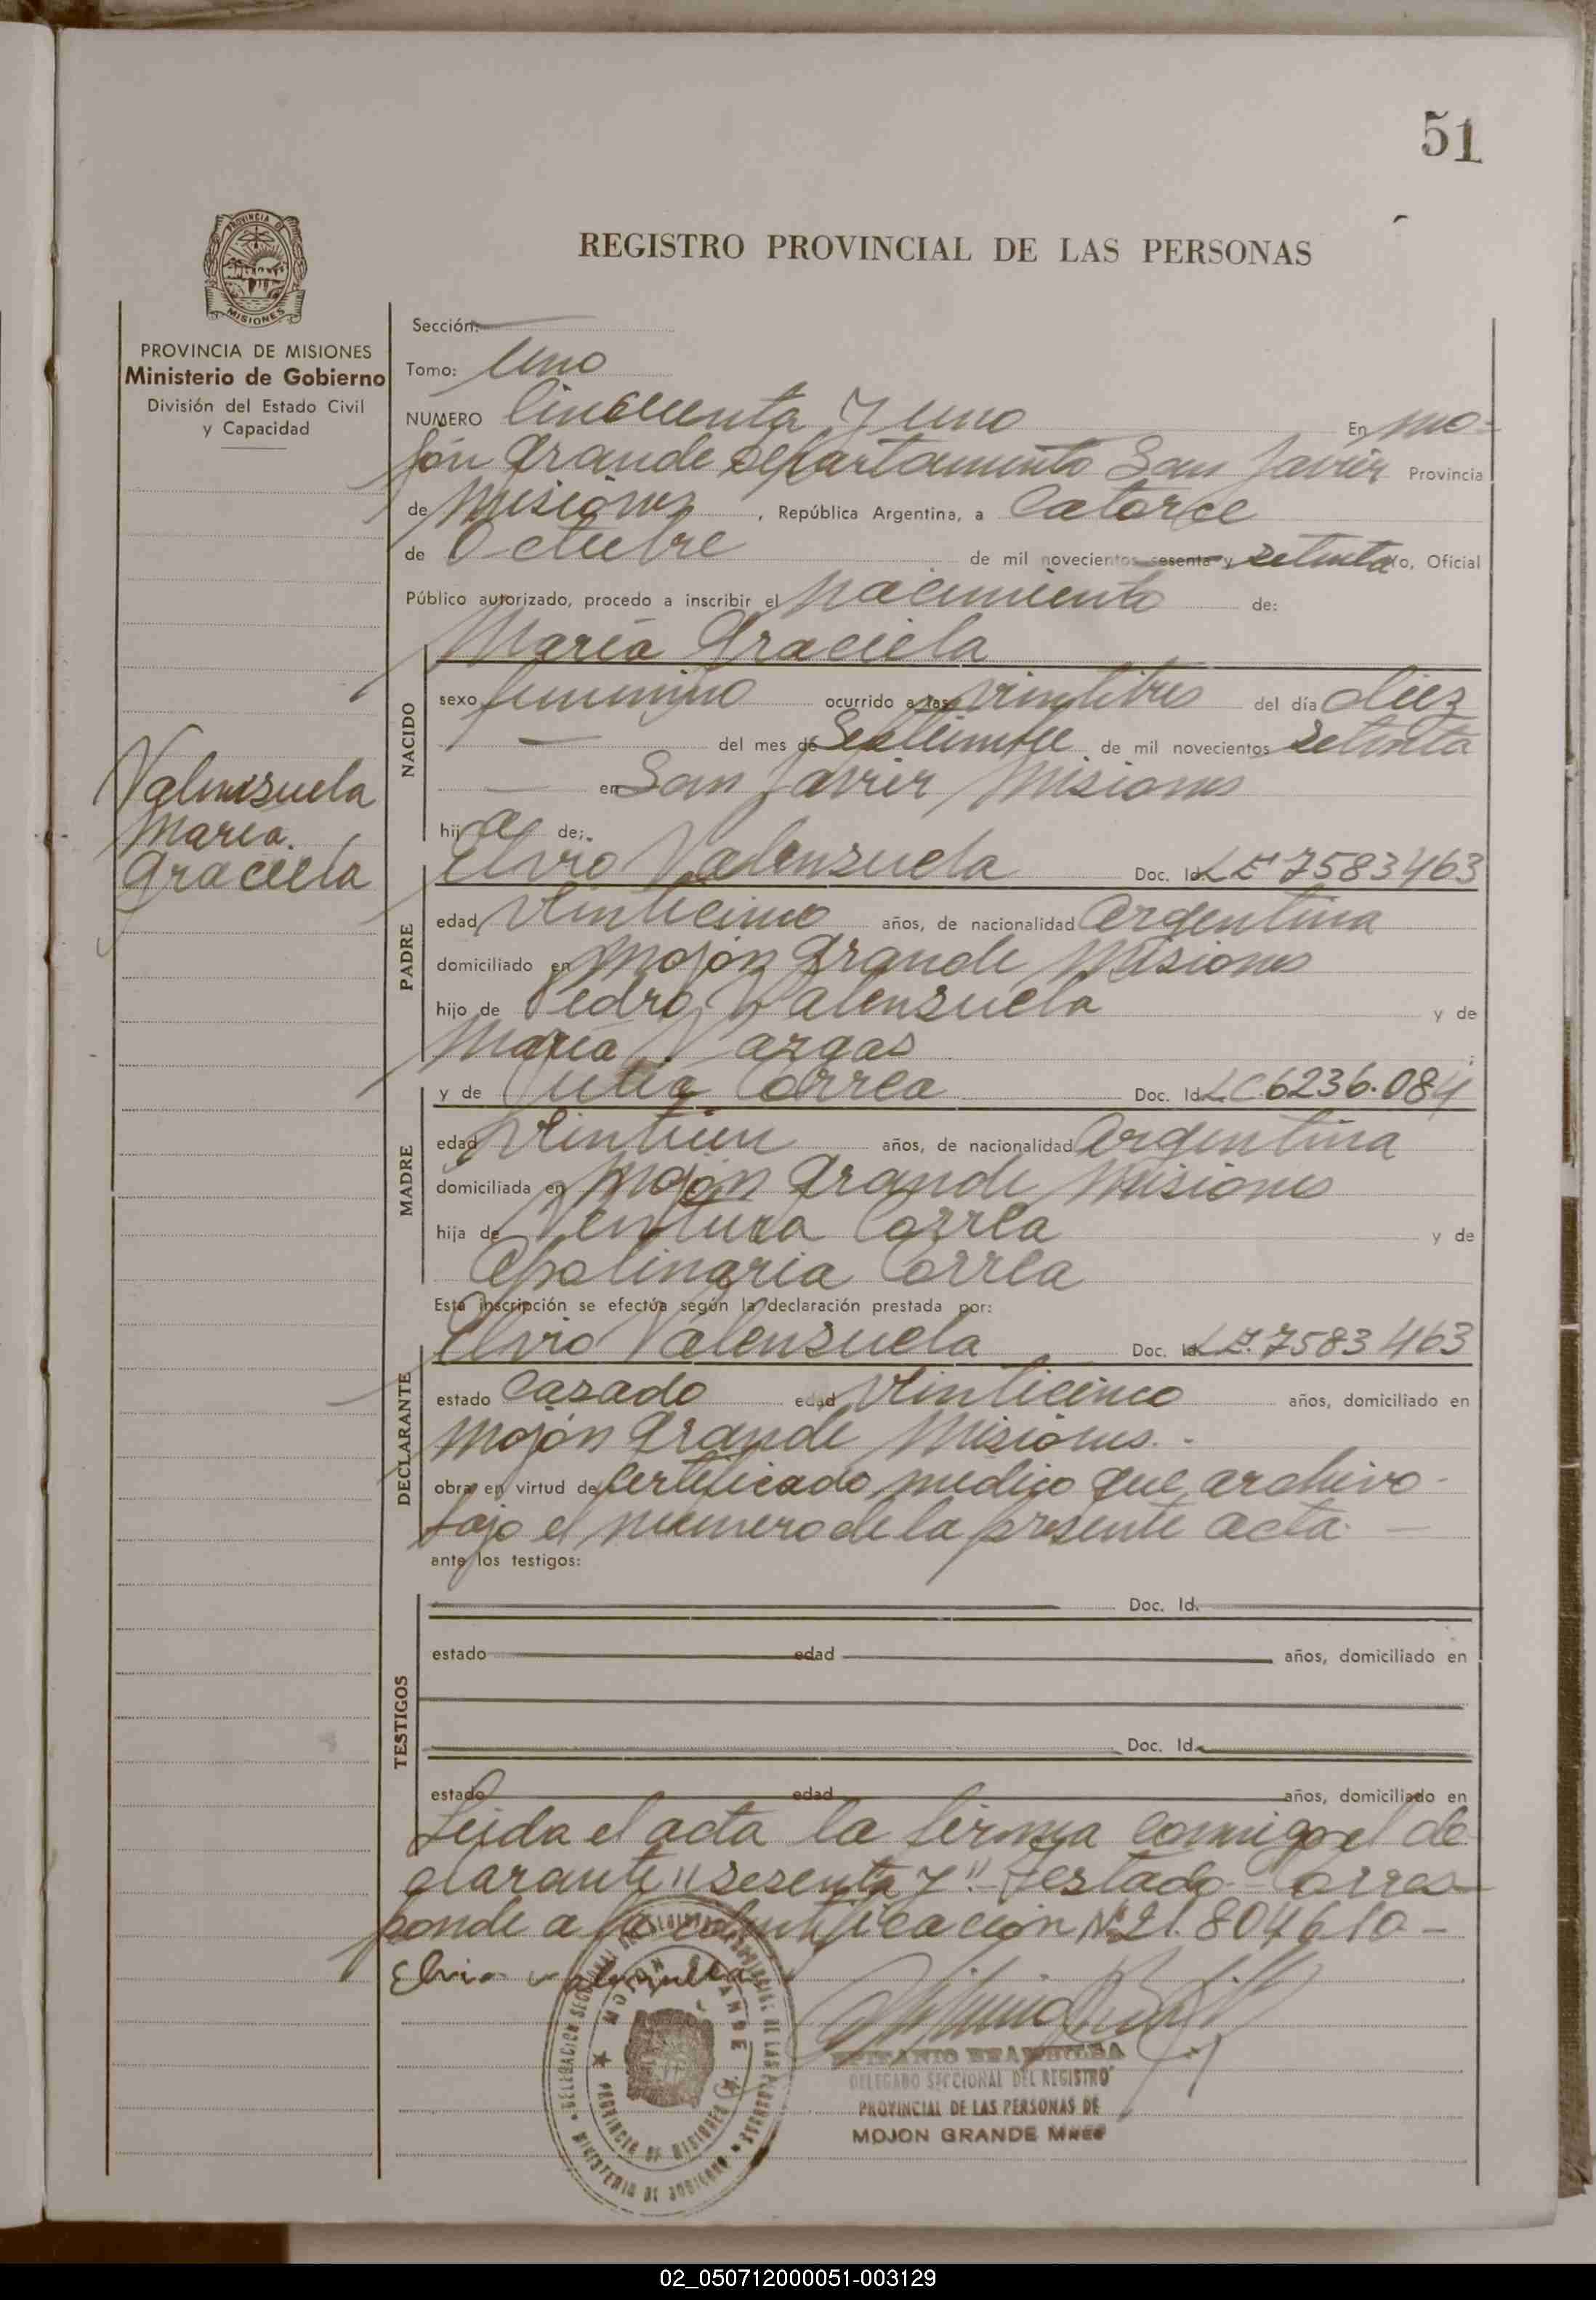 51
REGISTRO PROVINCIAL DE LAS PERSONAS
PROVINCIA DE MISIONES
Ministerio de Gobierno
División del Estado Civil
y Capacidad
Valenzuela
María
Graciela
Sección:
Tomo: Uno
NUMERO Cincuenta y uno En Mo-
jón Grande Departamento San Javier Provincia
de Misiones, República Argentina, a Catorce
de Octubre de mil novecientos sesenta y setenta Yo, Oficial
Público autorizado, procedo a inscribir el nacimiento de:
María Graciela
NACIDO
sexo femenino ocurrido a las veintitres del día diez
del mes de Septiembre de mil novecientos setenta
en San Javier Misiones
hij a de:
Elvio Valenzuela Doc. Id. LE 7583463
PADRE
edad veinticinco años, de nacionalidad Argentina
domiciliado en Mojón Grande Misiones
hijo de Pedro Valenzuela y de
María Vargas
y de Julia Correa Doc. Id. LC 6236.084
MADRE
edad veintiun años, de nacionalidad Argentina
domiciliada en Mojón Grande Misiones
hija de Ventura Correa y de
Apolinaria Correa
Esta inscripción se efectúa según la declaración prestada por:
Elvio Valenzuela Doc. Id. LE. 7583463
DECLARANTE
estado Casado edad veinticinco años, domiciliado en
Mojón Grande Misiones.-
obra en virtud de certificado medico que archivo
bajo el numero de la presente acta.
ante los testigos:
TESTIGOS
Doc. Id.
estado edad años, domiciliado en
Doc. Id.
estado edad años, domiciliado en
Leida el acta la firma conmigo el de
clarante "sesenta y" testado- Corres
ponde a la identificación Nº 21.804610-
Elvio valenzuela
DELEGADO SECCIONAL DEL REGISTRO
PROVINCIAL DE LAS PERSONAS DE
MOJON GRANDE Mnes
MOJON GRANDE
PROVINCIA DE MISIONES
MINISTERIO DE GOBIERNO
02_050712000051-003129